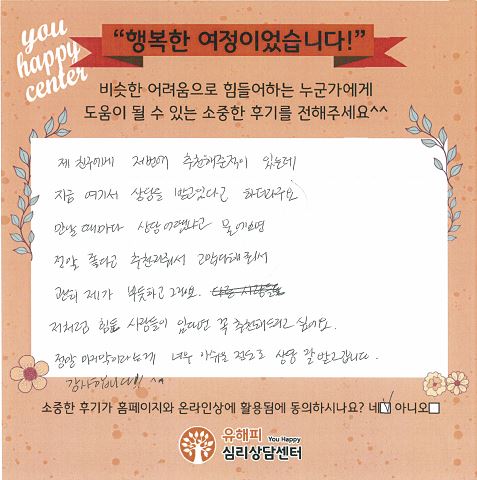 you
happy
center
“행복한 여정이었습니다!”
비슷한 어려움으로 힘들어하는 누군가에게
도움이 될 수 있는 소중한 후기를 전해주세요^^
제 친구에게 저번에 추천해준적이 있는데
지금 여기서 상담을 받고있다고 하더라구요
만날 때마다 상담 어떻냐고 물어보면
정말 좋다고 추천해줘서 고맙다해줘서
괜히 제가 뿌듯하고 그래요.
저처럼 힘든 사람들이 있다면 꼭 추천해드리고 싶어요.
정말 마지막이라는게 너무 아쉬울 정도로 상담 잘 받고갑니다.
감사합니다!! ^^
소중한 후기가 홈페이지와 온라인상에 활용됨에 동의하시나요? 네☑ 아니오□
유해피 You Happy
심리상담센터